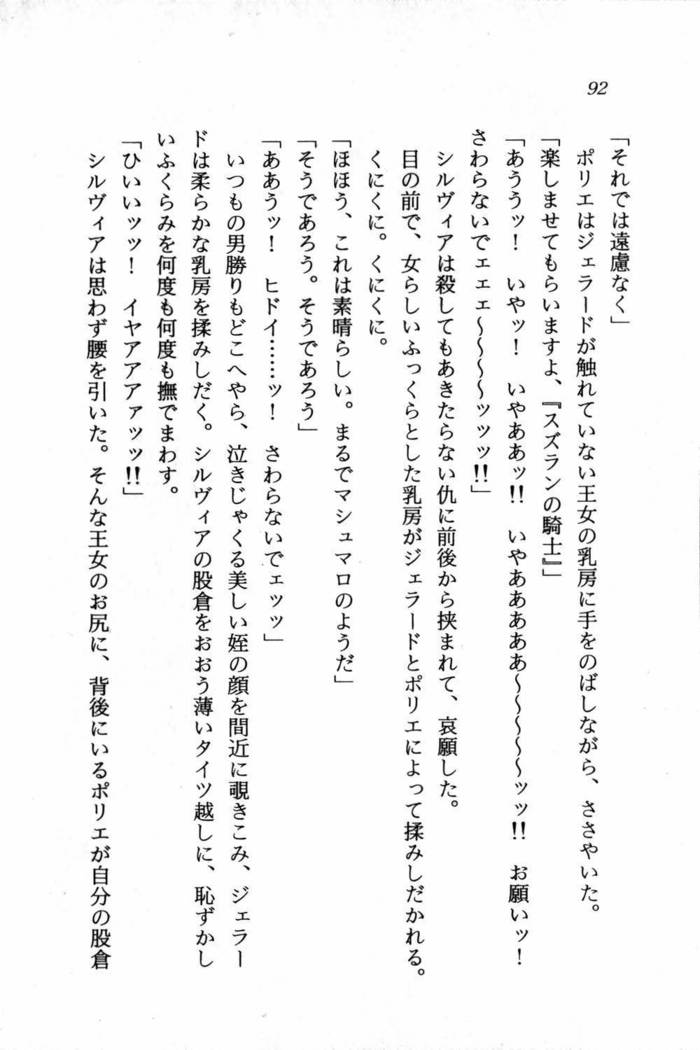 92
「それでは遠慮なく」
ポリエはジェラードが触れていない王女の乳房に手をのばしながら、ささやいた。
「楽しませてもらいますよ、『スズランの騎士』」
「あううッ！　いやッ！　いやああッ!!　いやああああああ～～～～～ッッ!!　お願いッ！
さわらないでェェェ～～～～ッッッ!!」
シルヴィアは殺してもあきたらない仇に前後から挟まれて、哀願した。
目の前で、女らしいふっくらとした乳房がジェラードとポリエによって揉みしだかれる。
くにくに。くにくに。
「ほほう、これは素晴らしい。まるでマシュマロのようだ」
「そうであろう。そうであろう」
「ああうッ！　ヒドイ……ッ！　さわらないでェッッ」
いつもの男勝りもどこへやら、泣きじゃくる美しい姪の顔を間近に覗きこみ、ジェラー
ドは柔らかな乳房を揉みしだく。シルヴィアの股倉をおおう薄いタイツ越しに、恥ずかし
いふくらみを何度も何度も撫でまわす。
「ひいいッッ！　イヤアアアァッッ!!」
シルヴィアは思わず腰を引いた。そんな王女のお尻に、背後にいるポリエが自分の股倉